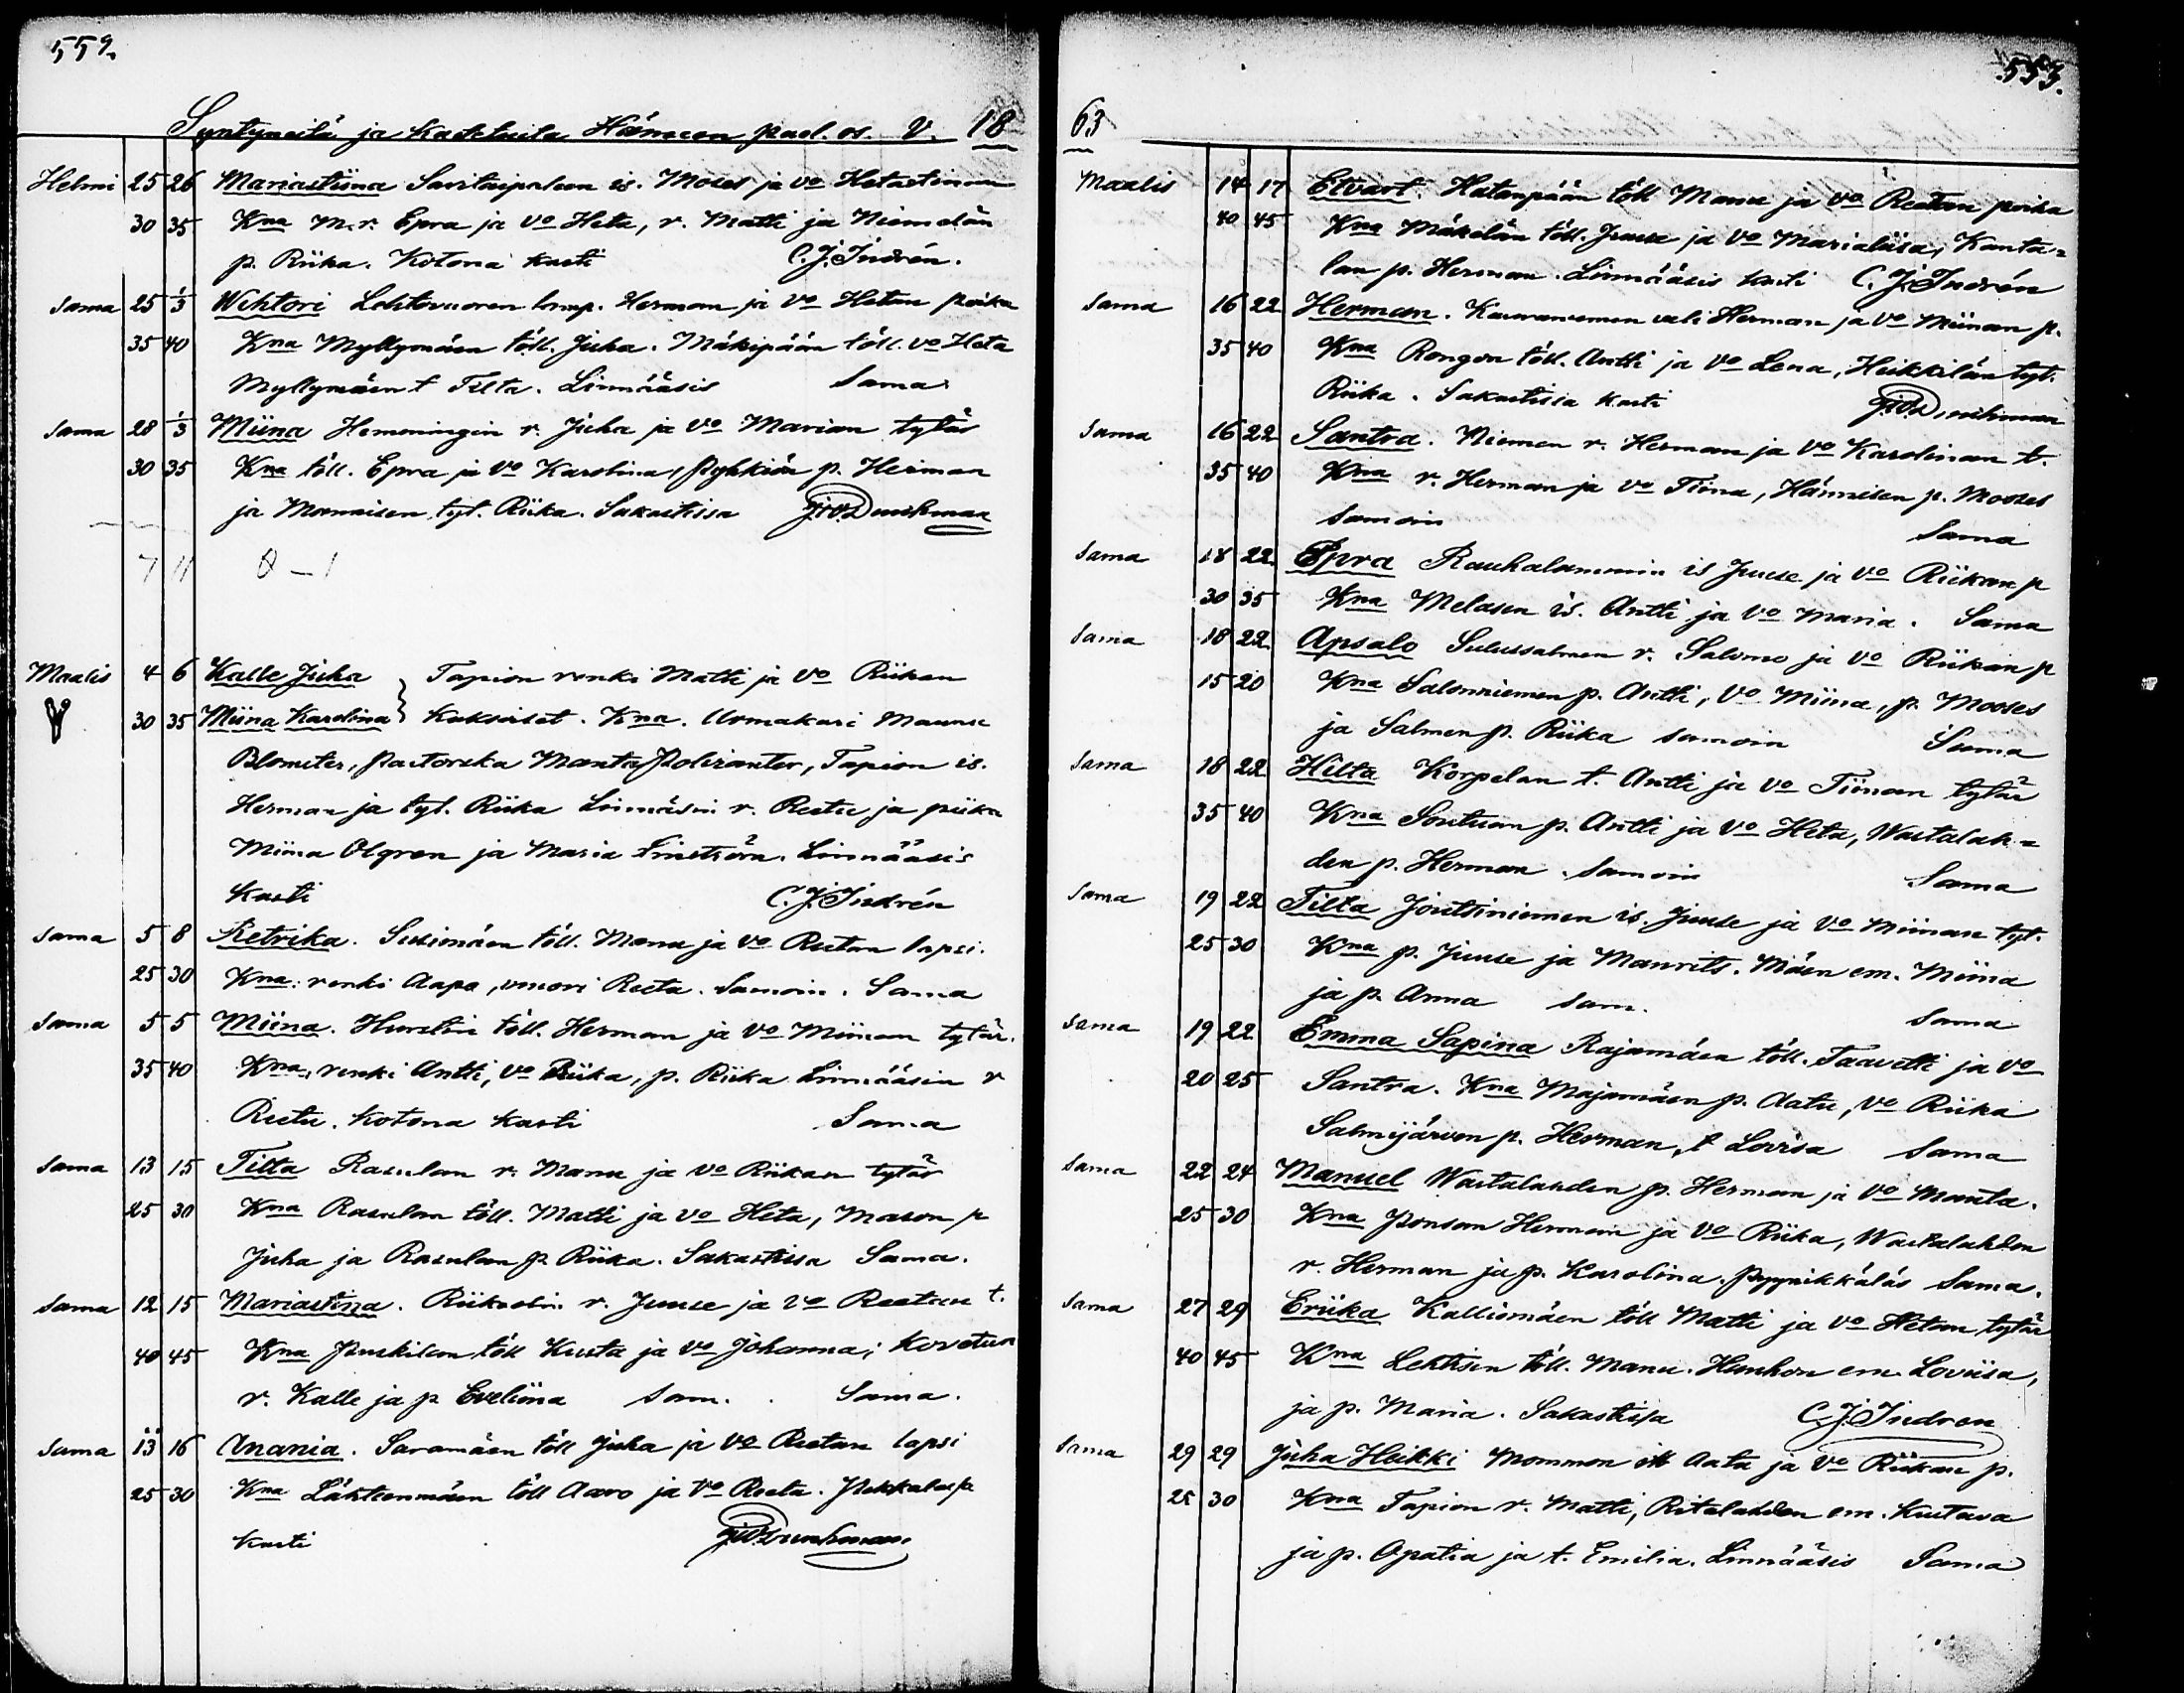 552.
Syntyneitä ja kastetuita Hämeen puol. os. V. 18
Helmi 25 26 Mariastiina Savitaipaleen is. Moses ja vo Hetastinan
30 35 Kna M. r. Epra ja vo Heta, r. Matti ja Niemelän
p. Riika. Kotona kasti C. J. Indrén.
Sama 25 1/3 Wihtori Lehtovuoren lamp. Herman ja vo Hetan poika
35 40 Kna Myllymäen töll. Juha. Mäkipään töll. vo Heta
Myllymäen t Tilta. Linnääsis Sama
Sama 28 1/3 Miina Hemmingin r. Juha ja vo Marian tytär
30 35 Kna töll. Epra ja vo Karolina, Pyhkiön p. Herman
ja Monnisen tyt. Riika. Sakastissa
7 11 0 – 1
Maalis 4 6 Kalle Juha } Tapion renki Matti ja vo Riikan
30 35 Miina Karolina } Kaksoiset. Kna. Urmakari Maunu
Blomster, Pastorska Manta Polviander, Tapion is.
Herman ja tyt. Riika Linnäsin r. Reetu ja piika
Miina Olgren ja Maria Linström. Linnääsis
kasti C. J. Indrén
Sama 5 8 Retrika. Susimäen töll. Manu ja vo Reetan lapsi.
25 30 Kna: renki Aapa, vuori Reeta. Samoin. Sama
Sama 5 5 Miina. Hurstin töll. Herman ja vo Miinan tytär.
35 40 Kna, renki Antti, vo Riika, p. Riika Linnääsin r
Reetu. Kotona kasti Sama
Sama 13 15 Tilta Rasulan r. Manu ja vo Riikan tytär
25 30 Kna Rasulan töll. Matti ja vo Heta, Mason p
Juha ja Rasulan p. Riika. Sakastissa Sama.
Sama 12 15 Mariastina. r. Juuse ja vo Reetan t.
40 45 Kna Puskilan töll Kusta ja vo Johanna; Kovetun
r. Kalle ja p Eveliina Sam. Sama.
Sama 13 16 Anania. Saramäen töll Juha ja vo Reetan lapsi
25 30 Kna Lähteenmäen töll Aaro ja vo Reeta. Pekkalas
kasti
553.
63
Maalis 14 17 Etvart. Hatanpään töll Manu ja vo Reetan poika
40 45 Kna Mäkelän töll. Juuse ja vo Marialiisa, Kanta=
lan p. Herman. Linnääsis kasti C. J. Indrén
Sama 16 22 Herman. vali Herman ja vo Miinan p.
35 40 Kna Rongon töll. Antti ja vo Lena, Heikkilän tyt.
Riika. Sakastissa kasti
Sama 16 22 Santra. Niemen r. Herman ja vo Karolinan t.
35 40 Kna r. Herman ja vo Tiina, Hännisen p. Mooses
Samoin Sama
Sama 18 22 Epra Rauhalammin is Juuse ja vo Riikan p
30 35 Kna Melasen is. Antti ja vo Maria. Sama
Sama 18 22 Apsalo Sulussalmen r. Salomo ja vo Riikan p
15 20 Kna Salonniemen p. Antti, vo Miina, p. Mooses
ja Salmen p. Riika samoin Sama
Sama 18 22 Hilta Korpelan t. Antti ja vo Tiinan tytär
35 40 Kna Sontuan p. Antti ja vo Heta, Wastalah=
den p. Herman. Samoin Sama
Sama 19 22 Tilta Joutsiniemen is. Juuse ja vo Miinan tyt.
25 30 Kna p. Juuse ja Maurits. Mäen em. Miina
ja p. Anna sam. Sama
Sama 19 22 Emma Sapina Rajamäen töll. Taavetti ja vo
20 25 Santra. Kna Majamäen p. Aatu, vo Riika
Salmijärven p. Herman, t Lovisa Sama
Sama 22 24 Manuel Wastalahden p. Herman ja vo Manta.
25 30 Kna Ponsan Herman ja vo Riika, Wastalahden
r. Herman ja p. Karolina. Pyynikkäläs Sama.
Sama 27 29 Eriika Kalliomäen töll Matti ja vo Hetan tytär
40 45 Kna Lehtisen töll. Manu. Hauhon em. Loviisa,
ja p. Maria. Sakastissa C. J. Indren
Sama 29 29 Juha Heikki Mommon itt Aata ja vo Riikan p.
25 30 Kna Tapion r. Matti, Ritalahden em. Kustava
ja p. Opatia ja t. Emilia. Linnääsis Sama